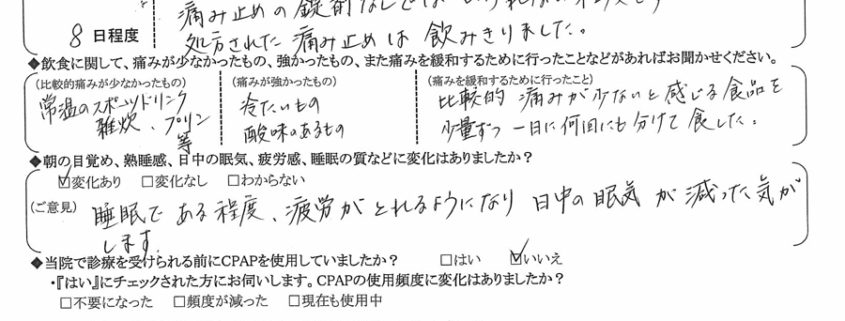 痛み止めの錠剤なしでは
8 日程度
処方された痛み止めは飲みきりました。
◆飲食に関して、痛みが少なかったもの、強かったもの、また痛みを緩和するために行ったことなどがあればお聞かせください。
(比較的痛みが少なかったもの) (痛みが強かったもの) (痛みを緩和するために行ったこと)
常温のスポーツドリンク 冷たいもの 比較的 痛みが少ないと感じる食品を
雑炊、プリン 酸味のあるもの 少量ずつ 一日に何回にも分けて食した。
等
◆朝の目覚め、熟睡感、日中の眠気、疲労感、睡眠の質などに変化はありましたか?
☑変化あり □変化なし □わからない
(ご意見) 睡眠で ある程度、疲労がとれるようになり 日中の眠気が減った気が
します。
◆当院で診療を受けられる前にCPAPを使用していましたか? □はい ☑いいえ
・『はい』にチェックされた方にお伺いします。CPAPの使用頻度に変化はありましたか?
□不要になった □頻度が減った □現在も使用中